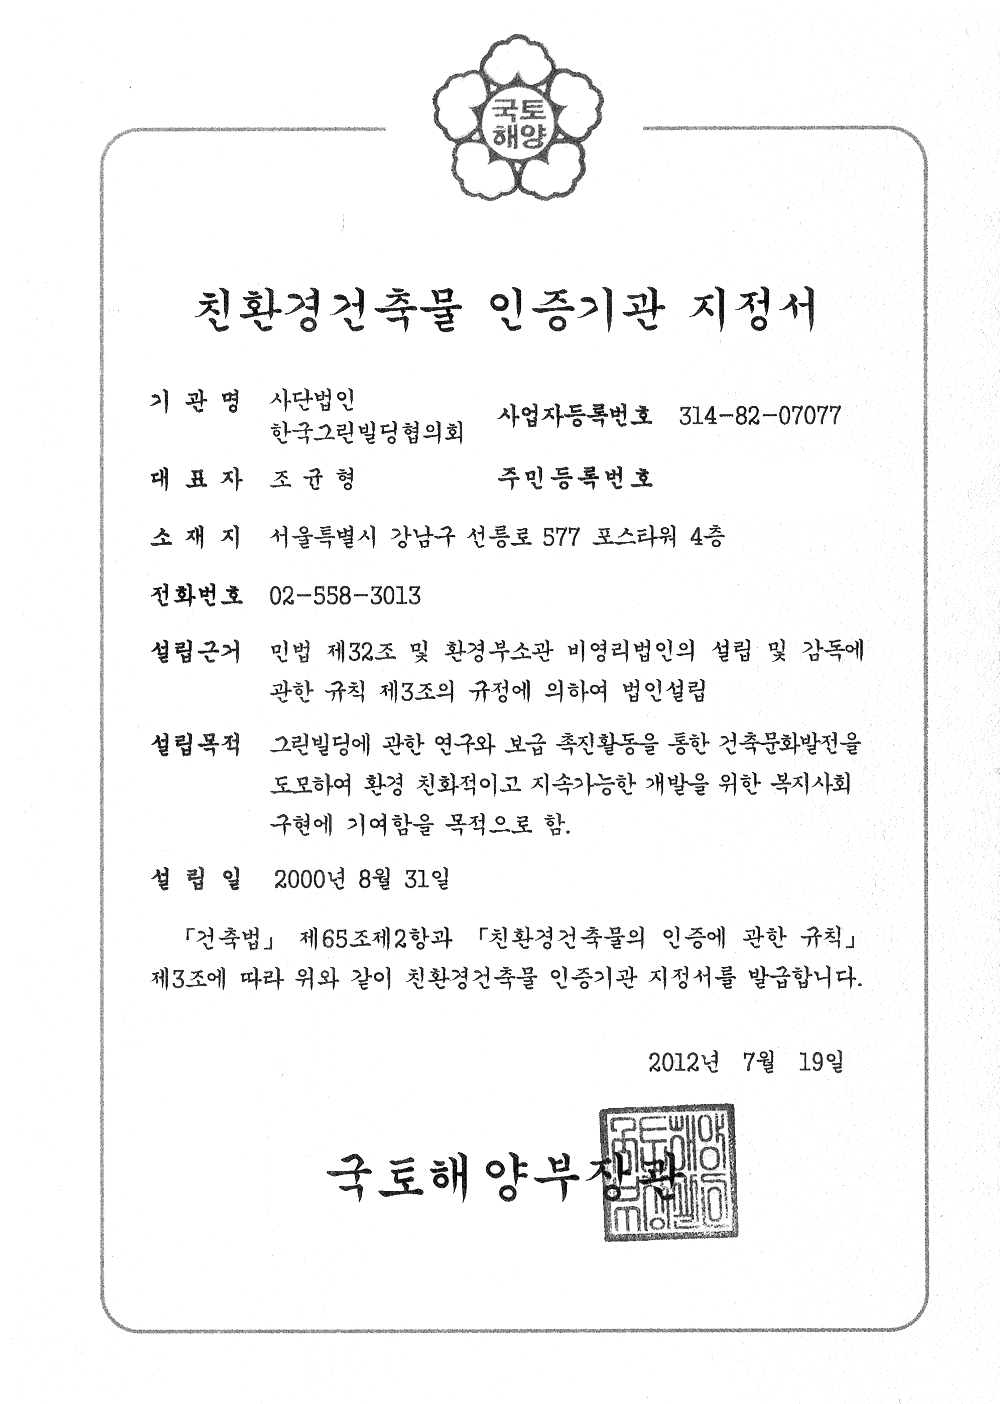 국토
해양
친환경건축물 인증기관 지정서
기 관 명 사단법인
한국그린빌딩협의회
사업자등록번호 314-82-07077
대 표 자 조 균 형 주민등록번호
소 재 지 서울특별시 강남구 선릉로 577 포스타워 4층
전화번호 02-558-3013
설립근거 민법 제32조 및 환경부소관 비영리법인의 설립 및 감독에
관한 규칙 제3조의 규정에 의하여 법인설립
설립목적 그린빌딩에 관한 연구와 보급 촉진활동을 통한 건축문화발전을
도모하여 환경 친화적이고 지속가능한 개발을 위한 복지사회
구현에 기여함을 목적으로 함.
설 립 일 2000년 8월 31일
「건축법」 제65조제2항과 「친환경건축물의 인증에 관한 규칙」
제3조에 따라 위와 같이 친환경건축물 인증기관 지정서를 발급합니다.
2012년 7월 19일
국토해양부장관